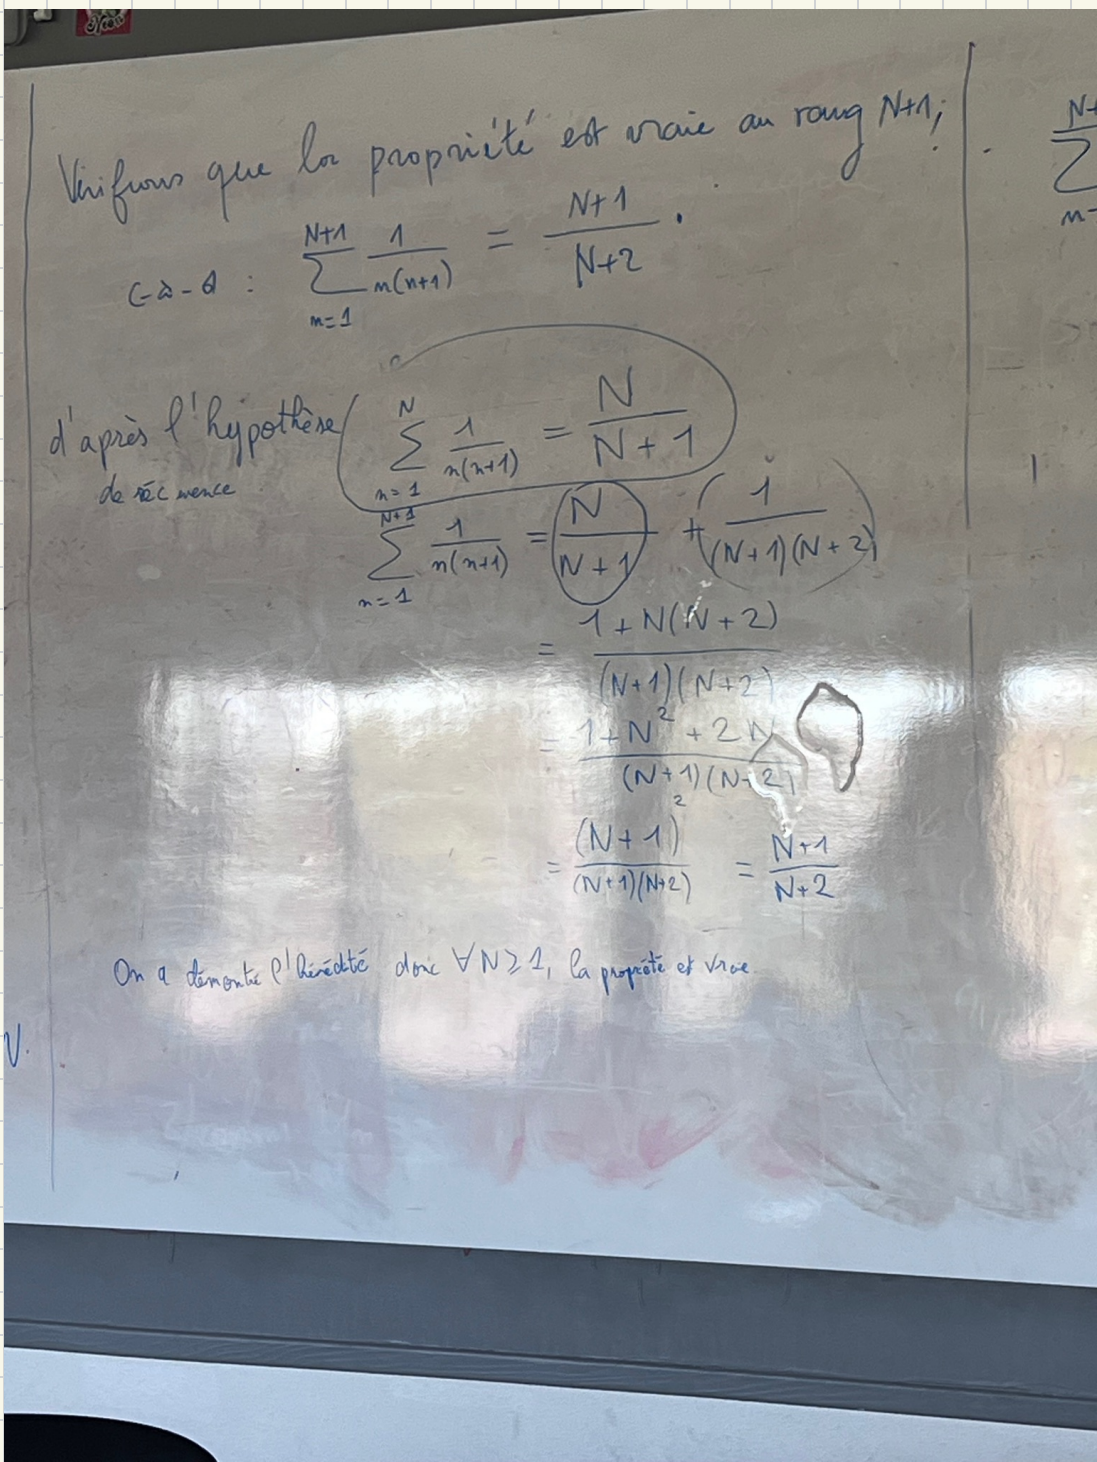 Vérifions que la propriété est vraie au rang N+1;
c-à-d : \sum_{n=1}^{N+1} \frac{1}{n(n+1)} = \frac{N+1}{N+2}.
d'après l'hypothèse de récurrence \sum_{n=1}^{N} \frac{1}{n(n+1)} = \frac{N}{N+1}
\sum_{n=1}^{N+1} \frac{1}{n(n+1)} = \frac{N}{N+1} + \frac{1}{(N+1)(N+2)}
= \frac{1+N(N+2)}{(N+1)(N+2)}
= \frac{1+N^2+2N}{(N+1)(N+2)}
= \frac{(N+1)^2}{(N+1)(N+2)} = \frac{N+1}{N+2}
On a démontré l'hérédité donc ∀N≥1, la propriété est vraie.